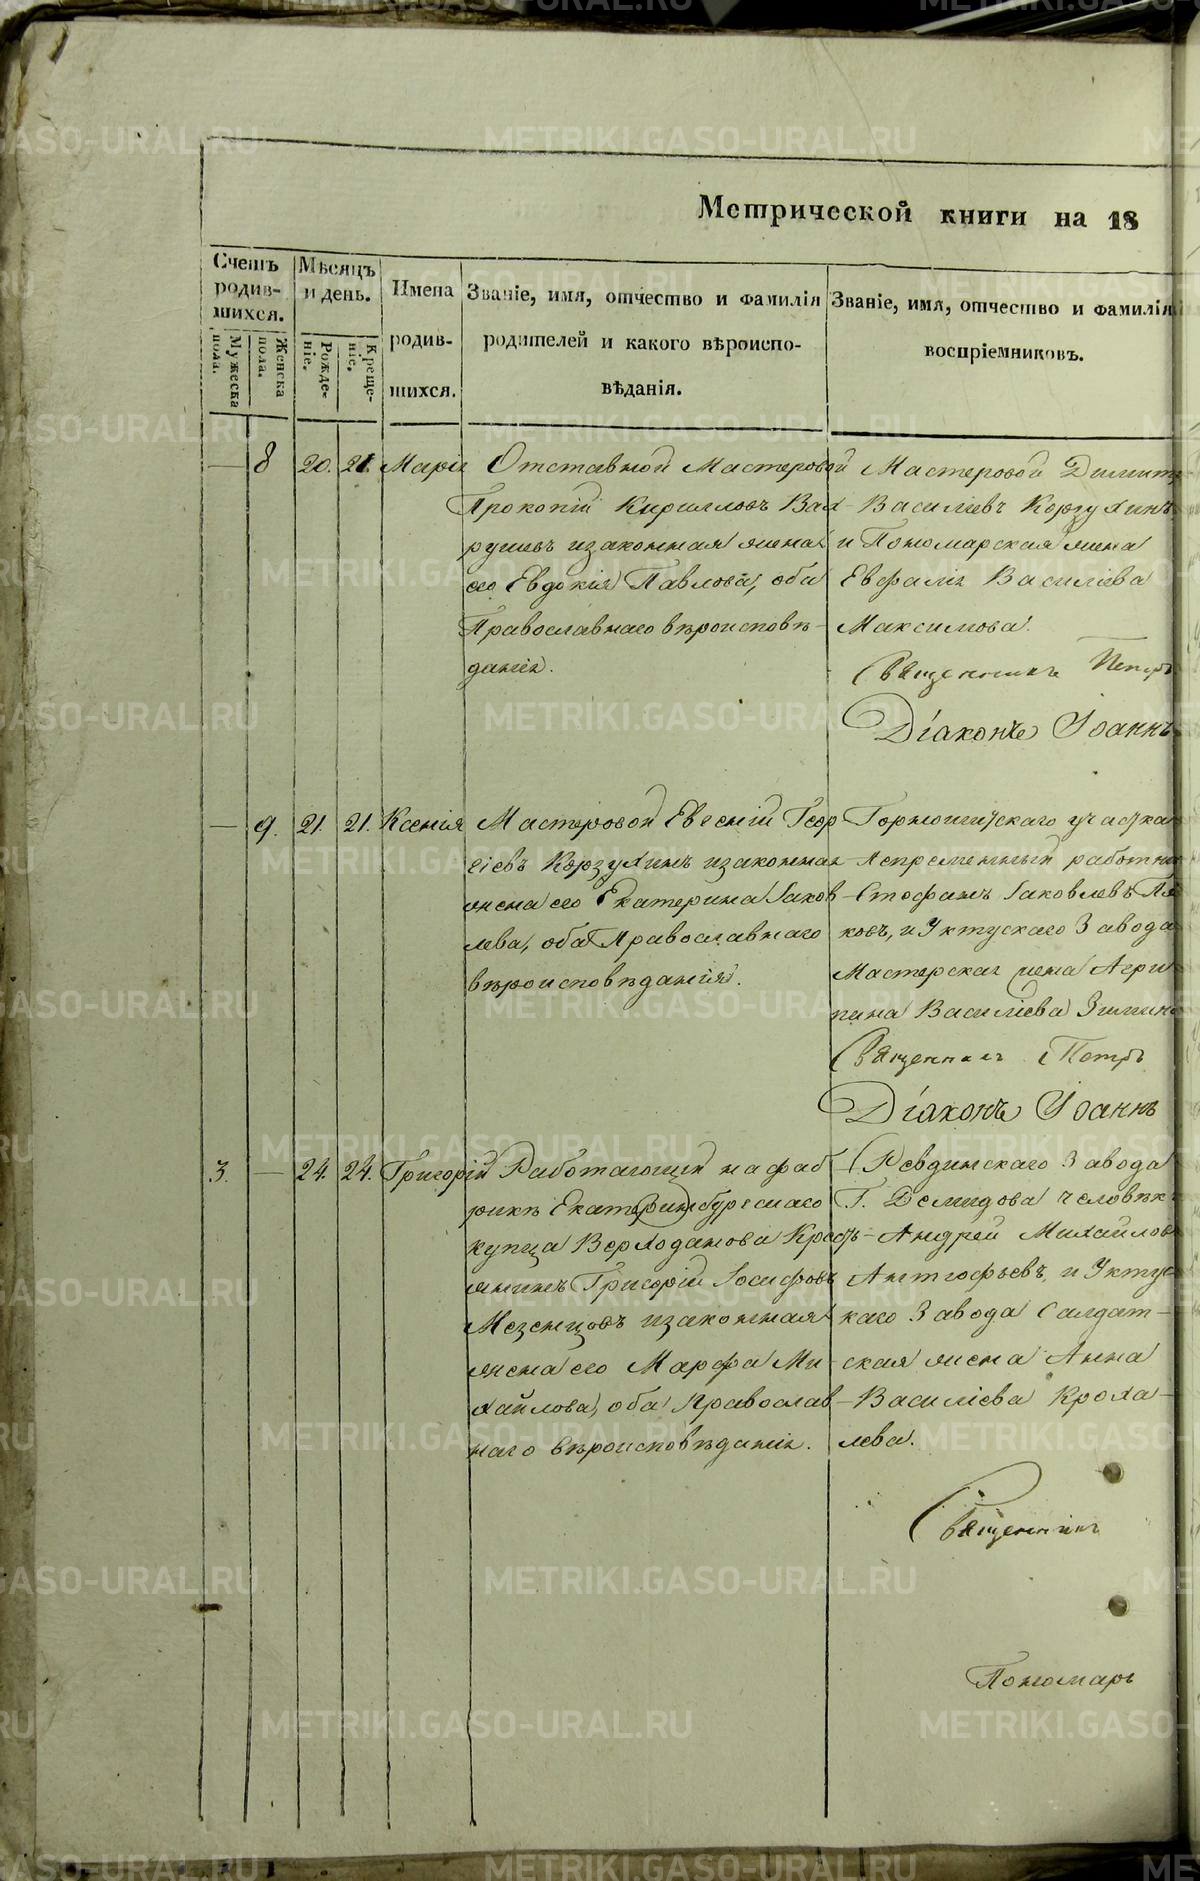 Метрической книги на 18
Счетъ родив-шихся.
Мужеска пола.
Женска пола.
Мѣсяцъ и день.
Рожде-ніе.
Креще-ніе.
Имена родив-шихся.
Званіе, имя, отчество и фамилія
родителей и какого вѣроиспо-
вѣданія.
Званіе, имя, отчество и фамилія
воспріемниковъ.
— 8 20. 21. Марія
Отставной Мастеровой
Прокопій Кирилловъ Вах
рушевъ изаконная жена
его Евдокія Павлова, оба
Православнаго вѣроисповѣ-
данія.
Мастеровой Димит
Василіевъ Корзухинъ
и Пономарская жена
Евфалія Василіева
Максимова.
Священникъ Петръ
Діаконъ Іоаннъ
— 9. 21. 21. Ксенія
Мастеровой Евгеній Геор
гіевъ Корзухинъ изаконная
жена его Екатерина Іаков
лева, оба Православнаго
вѣроисповѣданія.
Горнощитскаго участка
Непременный работни
Стефанъ Іаковлевъ
ковъ, и Уктускаго Завода
Мастерская жена Агри
пина Василіева Зимин
Священникъ Петръ
Діаконъ Іоаннъ
3. — 24. 24. Григорій
Работающій на фаб
рикѣ Екатеринбургскаго
купца Верходанова Крест
янинъ Григорій Іосифовъ
Мезенцовъ изаконная
жена его Марфа Ми-
хайлова, оба Православ
наго вѣроисповѣданія.
Ревдинскаго Завода
Г. Демидова человѣк
Андрей Михайлов
Антіофьевъ, и Уктус
каго Завода Салдат-
ская жена Анна
Василіева Кроха-
лева.
Священникъ
Пономарь
METRIKI.GASO-URAL.RU